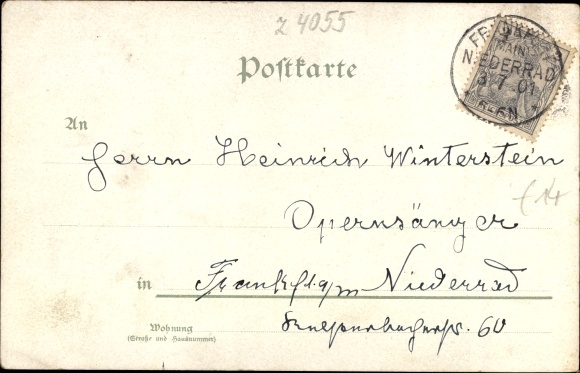 z 4055
FRANKFURT
(MAIN)
NIEDERRAD
3 7 01
Postkarte
An
Herrn Heinrich Winterstein
Opernsänger
in Frankf a/m Niederrad
60
Wohnung
(Straße und Hausnummer)